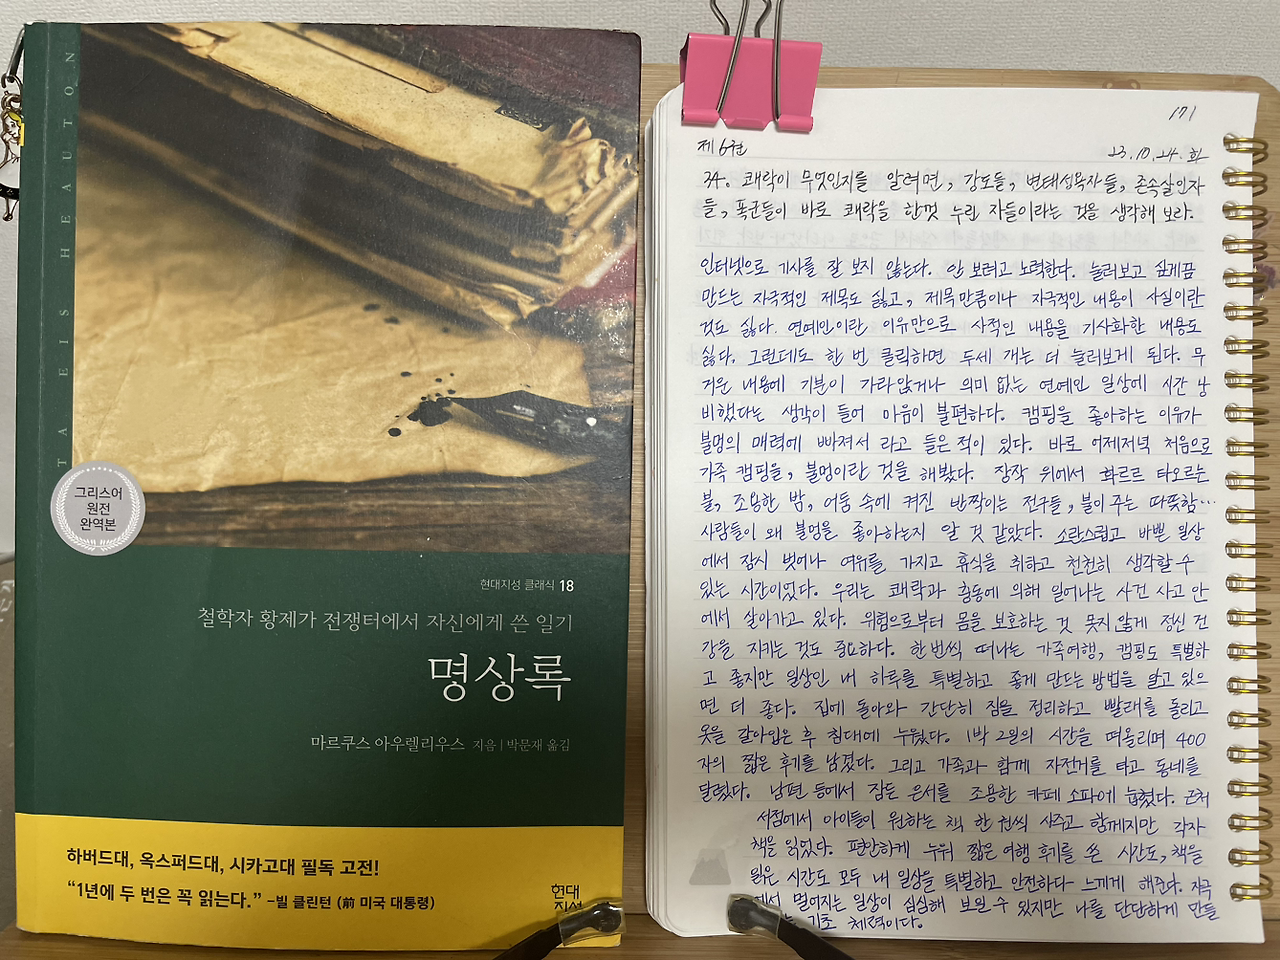 TA EIS HEAUTON
그리스어
원전
완역본
현대지성 클래식 18
철학자 황제가 전쟁터에서 자신에게 쓴 일기
명상록
마르쿠스 아우렐리우스 지음 | 박문재 옮김
하버드대, 옥스퍼드대, 시카고대 필독 고전!
“1년에 두 번은 꼭 읽는다.” –빌 클린턴 (前 미국 대통령)
현대
지성
171
제6권
23.10.24.화
34. 쾌락이 무엇인지를 알려면, 강도들, 변태성욕자들, 존속살인자
들, 폭군들이 바로 쾌락을 한껏 누린 자들이라는 것을 생각해 보라.
인터넷으로 기사를 잘 보지 않는다. 안 보려고 노력한다. 눌러보고 싶게끔
만드는 자극적인 제목도 싫고, 제목만큼이나 자극적인 내용이 사실이란
것도 싫다. 연예인이란 이유만으로 사적인 내용을 기사화한 내용도
싫다. 그런데도 한 번 클릭하면 두세 개는 더 눌러보게 된다. 무
거운 내용에 기분이 가라앉거나 의미 없는 연예인 일상에 시간 낭
비했다는 생각이 들어 마음이 불편하다. 캠핑을 좋아하는 이유가
불멍의 매력에 빠져서 라고 들은 적이 있다. 바로 어제저녁 처음으로
가족 캠핑을, 불멍이란 것을 해봤다. 장작 위에서 화르르 타오르는
불, 조용한 밤, 어둠 속에 켜진 반짝이는 전구들, 불이 주는 따뜻함…
사람들이 왜 불멍을 좋아하는지 알 것 같았다. 소란스럽고 바쁜 일상
에서 잠시 벗어나 여유를 가지고 휴식을 취하고 천천히 생각할 수
있는 시간이었다. 우리는 쾌락과 충동에 의해 일어나는 사건 사고 안
에서 살아가고 있다. 위험으로부터 몸을 보호하는 것 못지않게 정신 건
강을 지키는 것도 중요하다. 한 번씩 떠나는 가족여행, 캠핑도 특별하
고 좋지만 일상인 내 하루를 특별하고 좋게 만드는 방법을 알고 있으
면 더 좋다. 집에 돌아와 간단히 짐을 정리하고 빨래를 돌리고
옷을 갈아입은 후 침대에 누웠다. 1박 2일의 시간을 떠올리며 400
자의 짧은 후기를 남겼다. 그리고 가족과 함께 자전거를 타고 동네를
달렸다. 남편 등에서 잠든 은서를 조용한 카페 소파에 눕혔다. 근처
서점에서 아이들이 원하는 책 한 권씩 사주고 함께지만 각자
책을 읽었다. 편안하게 누워 짧은 여행 후기를 쓴 시간도, 책을
읽은 시간도 모두 내 일상을 특별하고 안전하다 느끼게 해준다. 자극
에서 멀어지는 일상이 심심해 보일 수 있지만 나를 단단하게 만들
는 기초 체력이다.